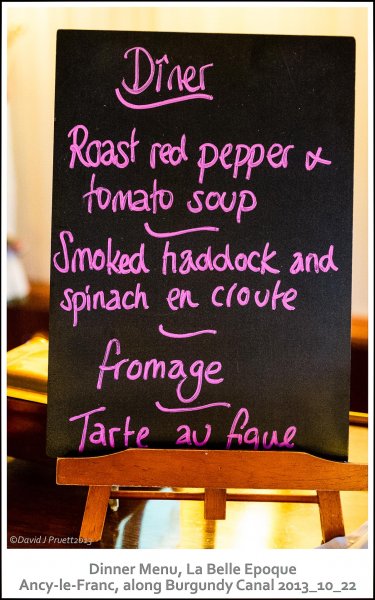 Dîner
Roast red pepper &
tomato soup
Smoked haddock and
spinach en croute
fromage
Tarte au figue
©David J Pruett2013
Dinner Menu, La Belle Epoque
Ancy-le-Franc, along Burgundy Canal 2013_10_22